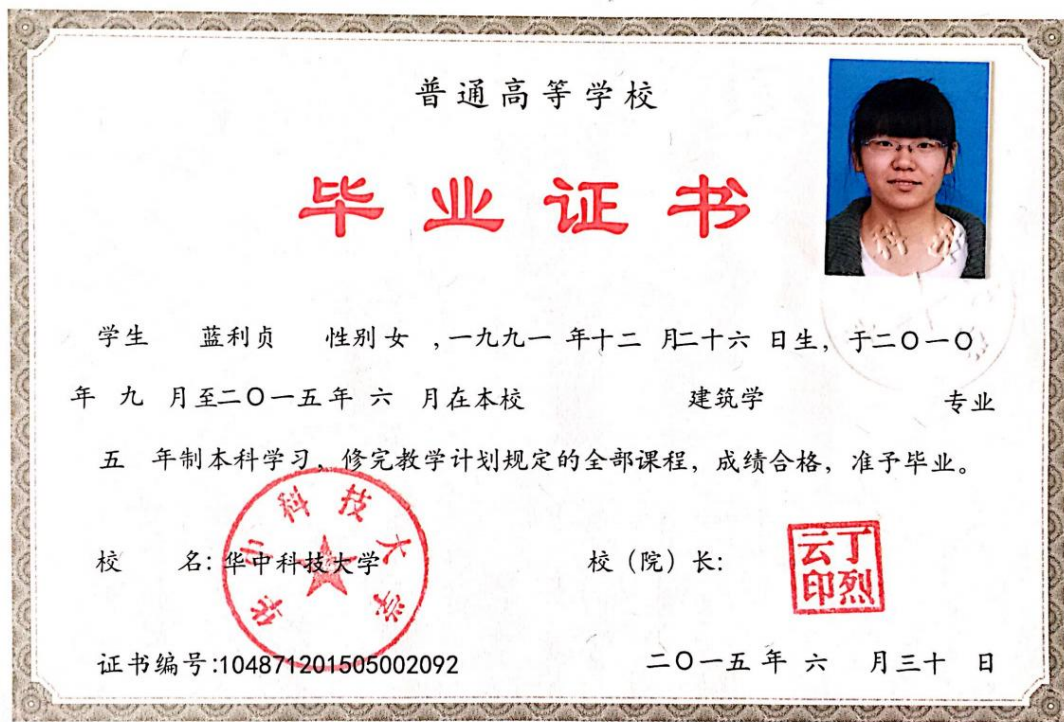 普通高等学校
毕业证书
学生 蓝利贞 性别 女 ,一九九一 年十二 月二十六 日生，于二〇一〇
年 九 月至二〇一五年 六 月在本校 建筑学 专业
五 年制本科学习，修完教学计划规定的全部课程，成绩合格，准予毕业。
华中科技大学
校 名：华中科技大学 校（院）长：
丁烈云印
证书编号:104871201505002092 二〇一五年 六 月三十 日